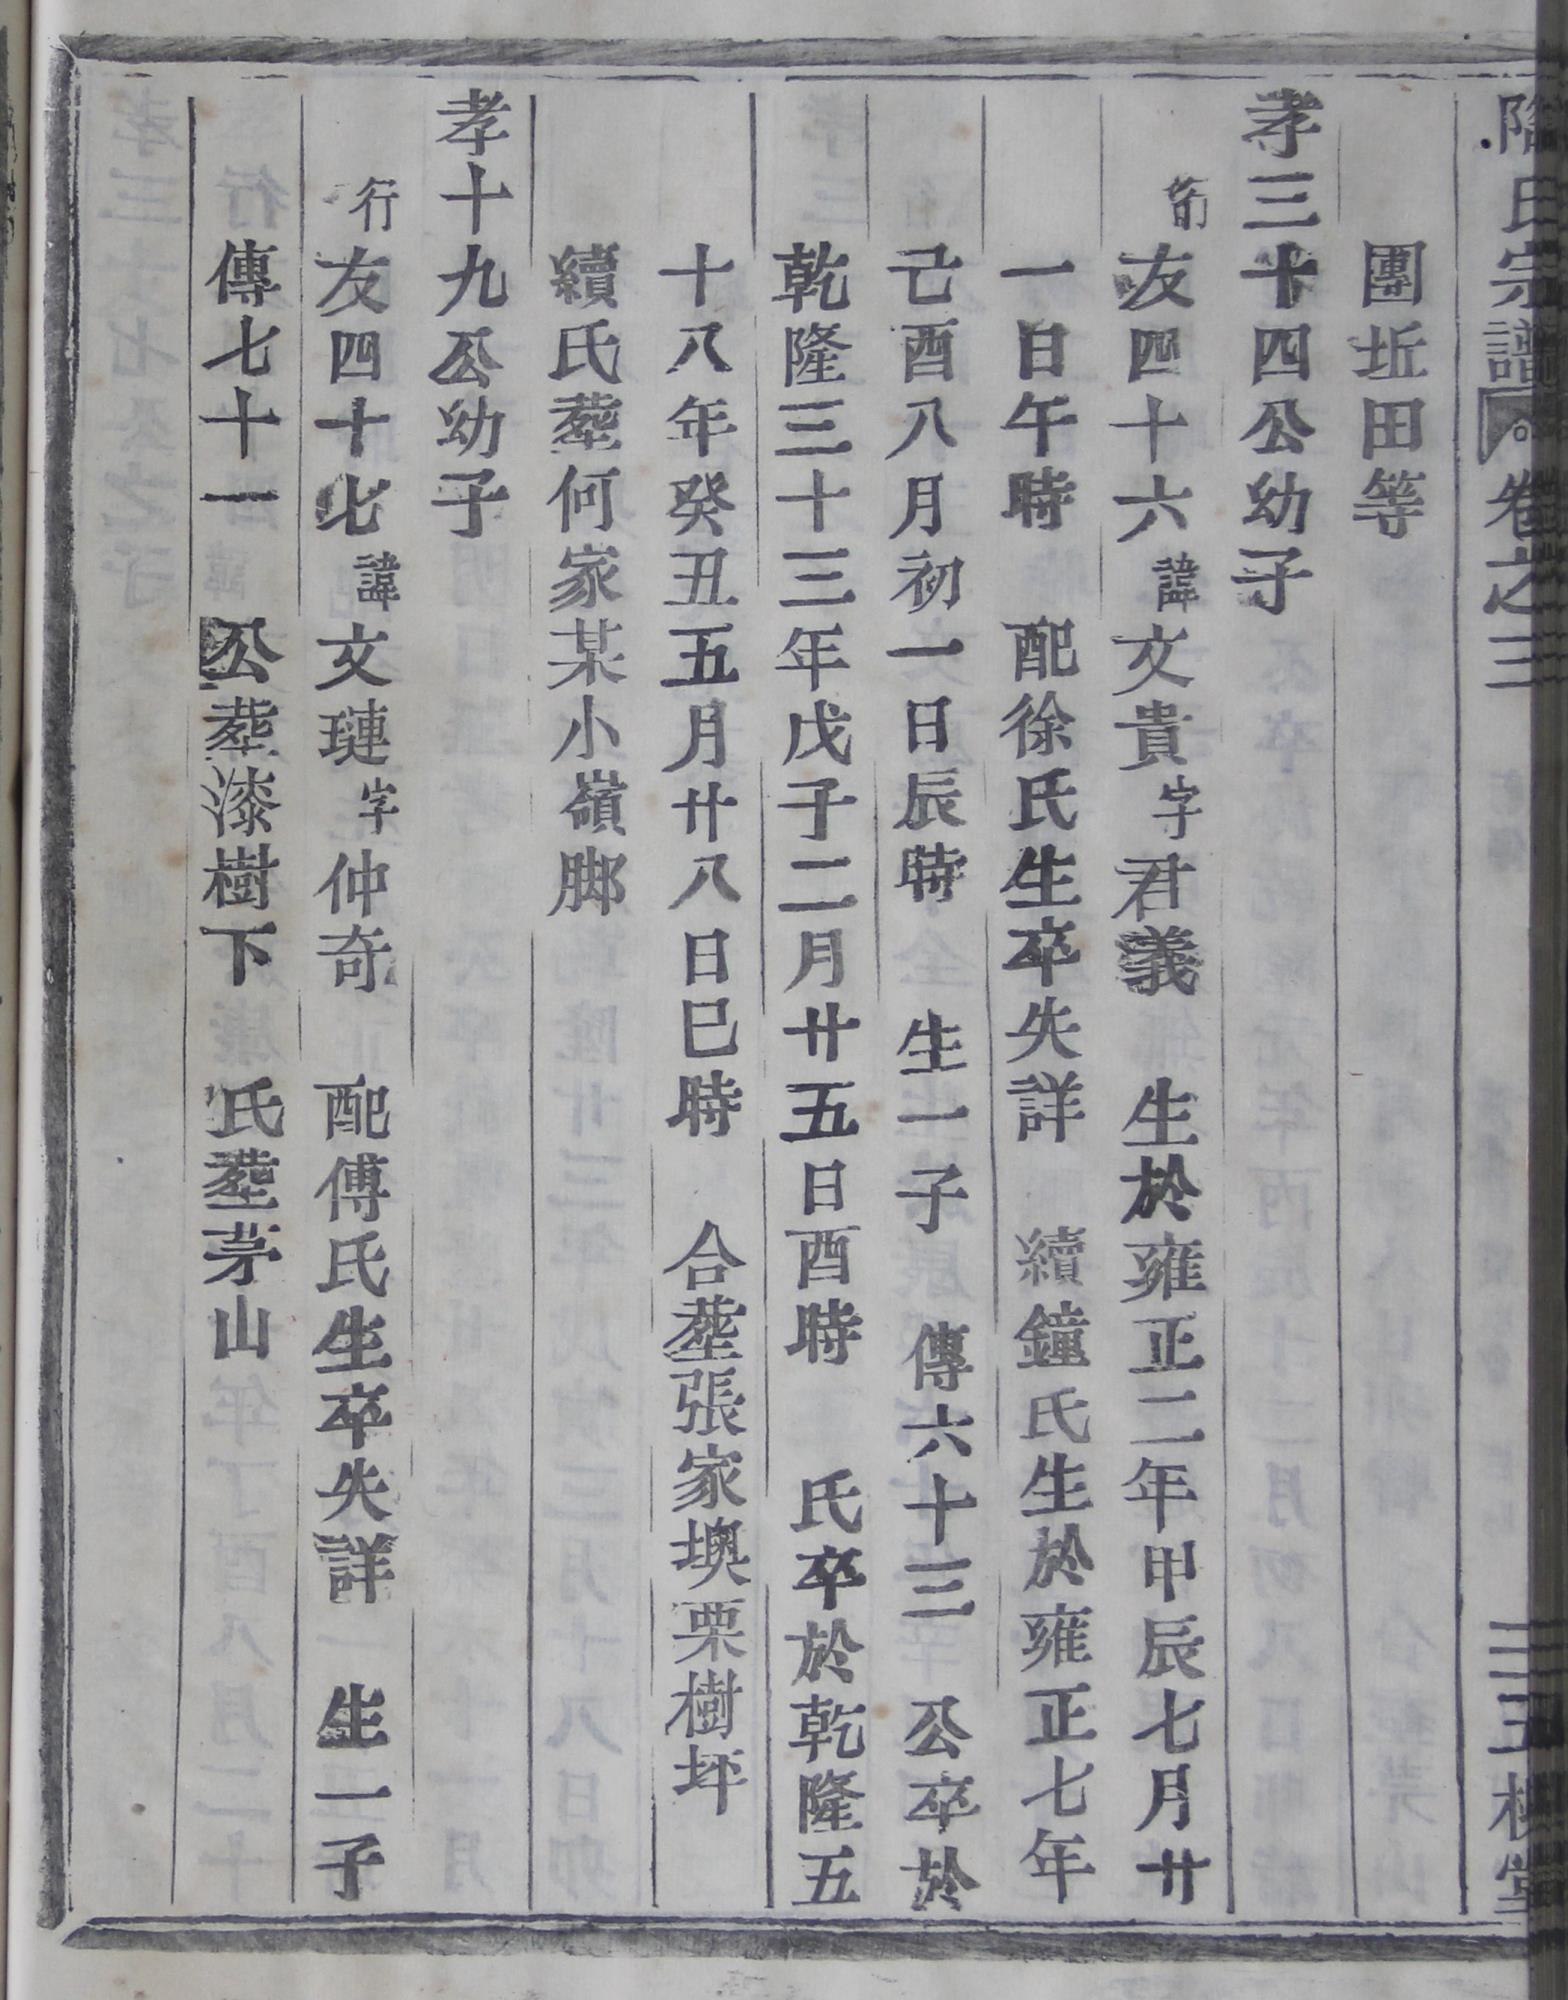 陶氏宗譜 卷之三 三五柳堂
團坵田等
孝三十四公幼子
行友四十六諱文貴字君義 生於雍正二年甲辰七月廿
一日午時 配徐氏生卒失詳 續鐘氏生於雍正七年
己酉八月初一日辰時 生一子 傳六十三 公卒於
乾隆三十三年戊子二月廿五日酉時 氏卒於乾隆五
十八年癸丑五月廿八日巳時 合塟張家墺栗樹坪
續氏塟何家某小嶺脚
孝十九公幼子
行友四十七諱文璉字仲奇 配傅氏生卒失詳 生一子
傳七十一 公塟漆樹下 氏塟茅山